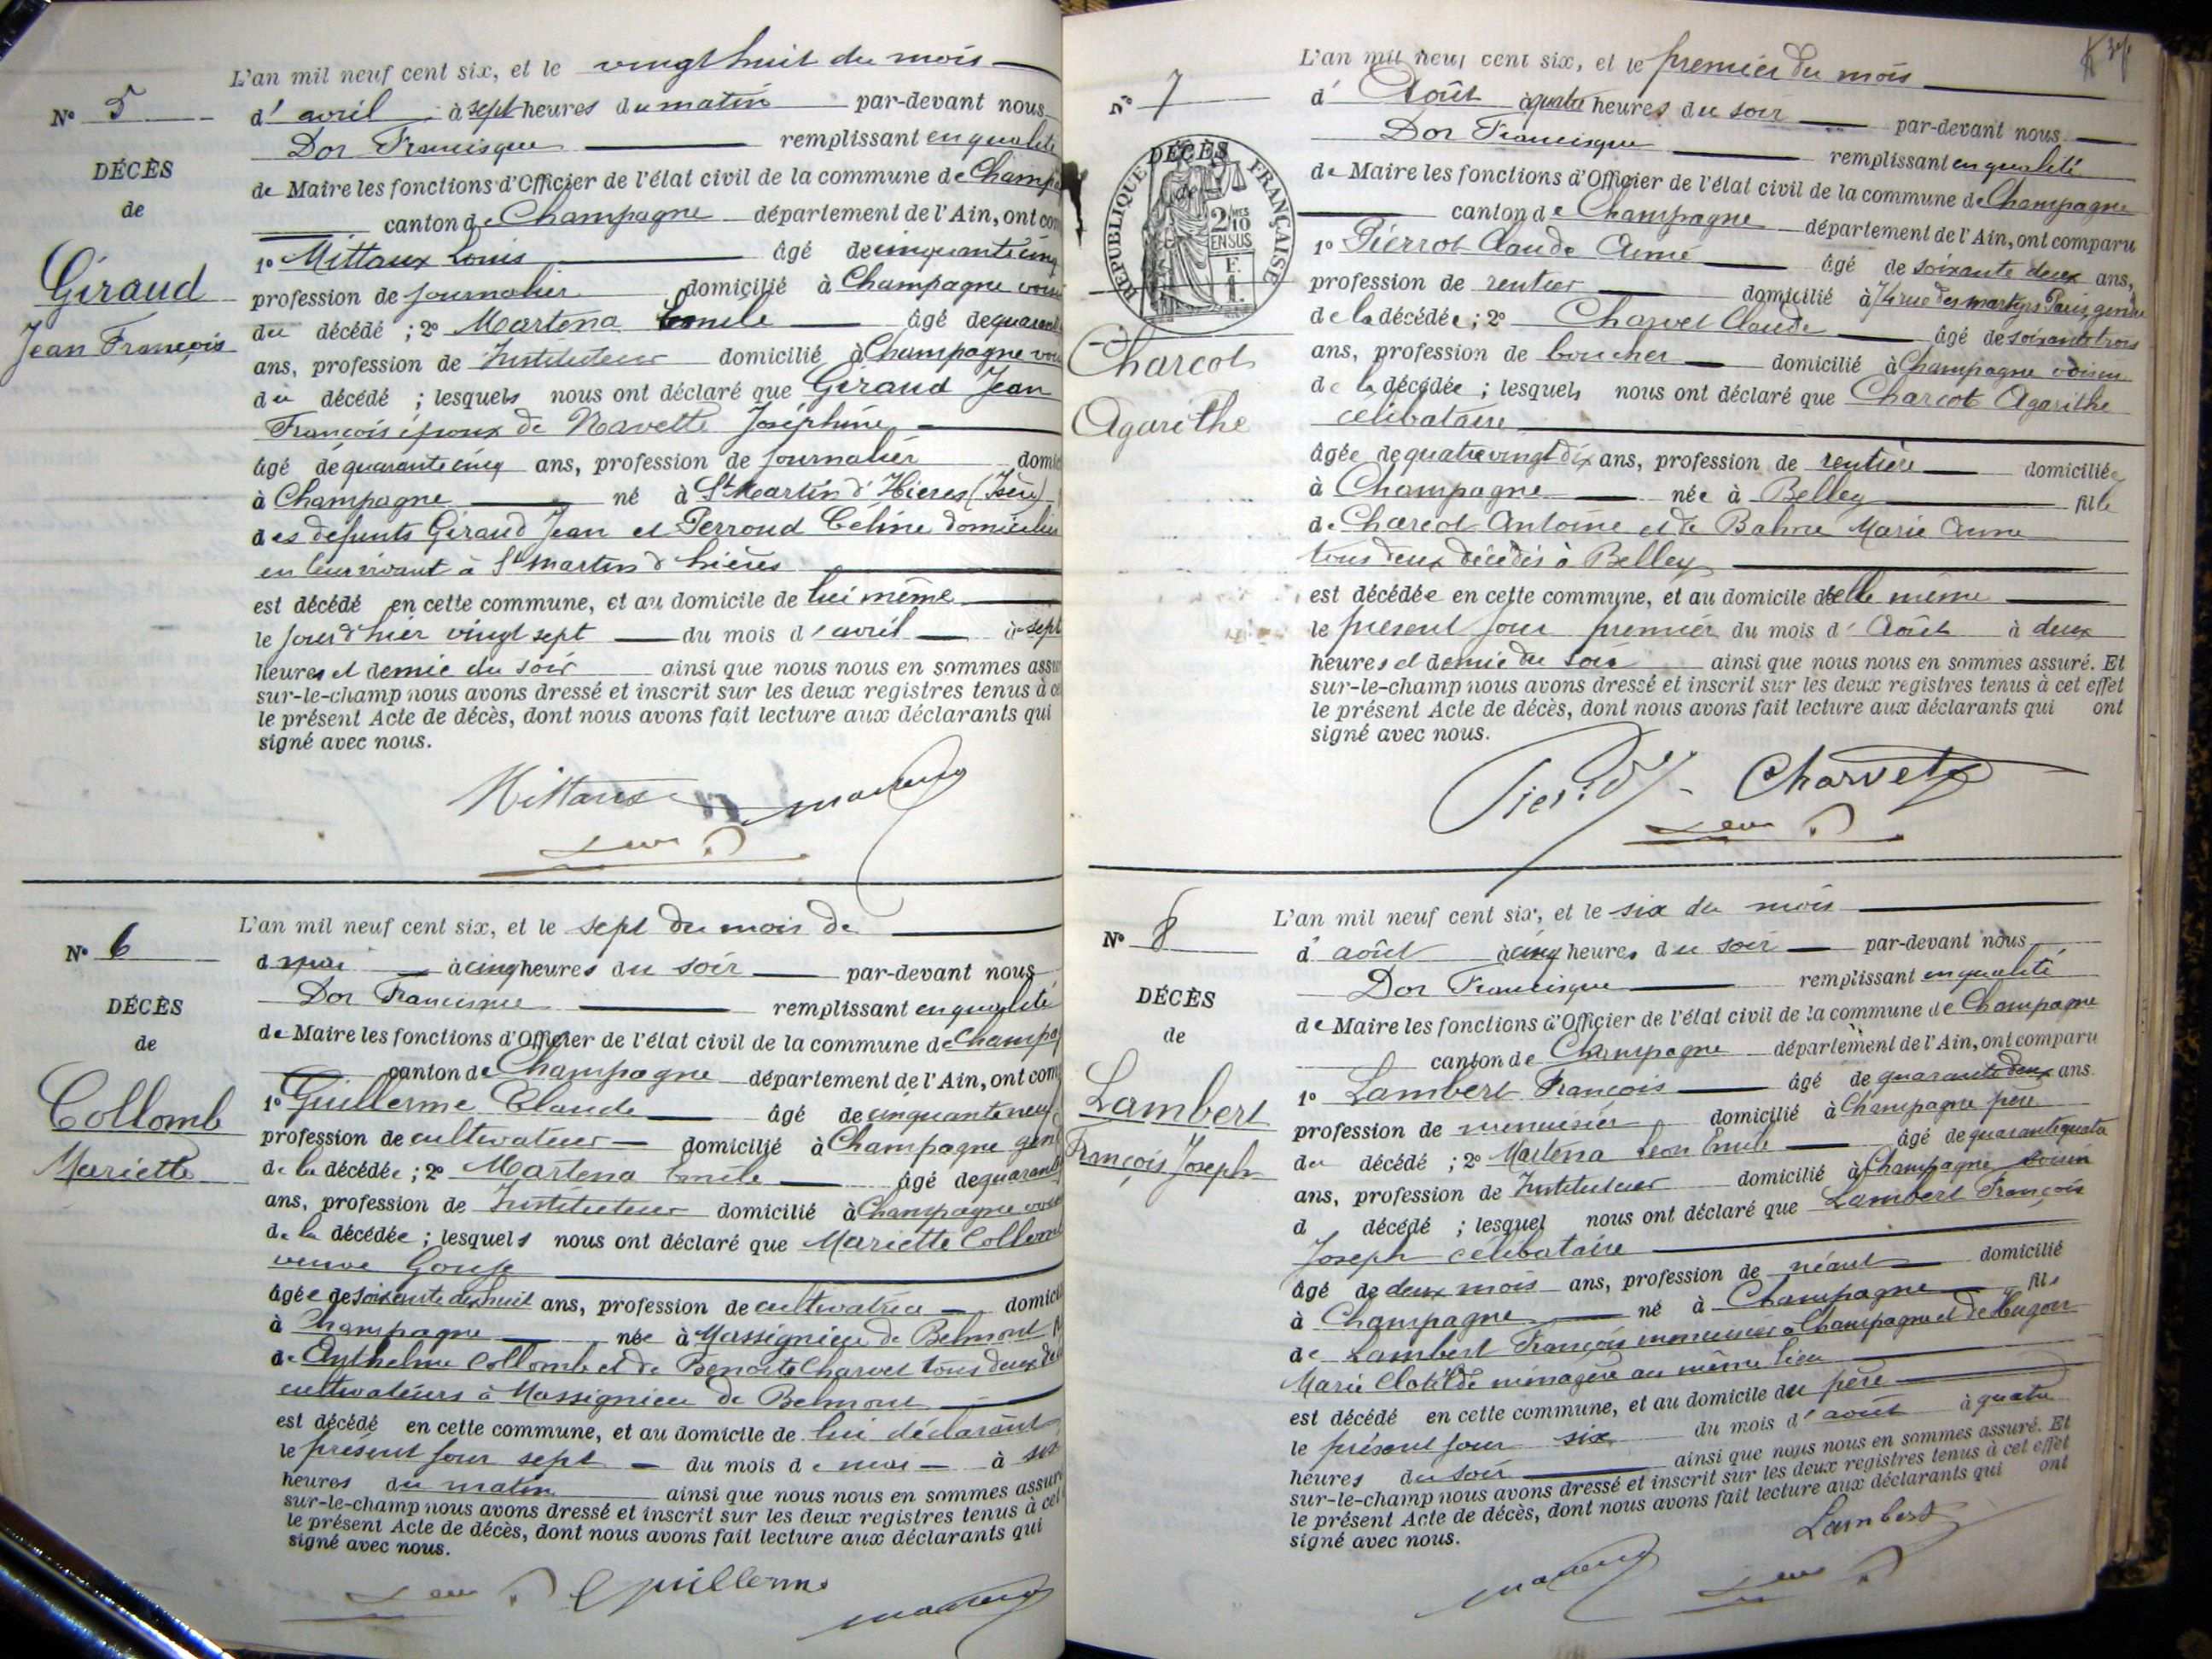 L'an mil neuf cent six, et le vingt huit du mois
N° 5
d' avril à sept heures du matin par-devant nous
Dor Francisque remplissant en qualité
DÉCÈS
de Maire les fonctions d'Officier de l'état civil de la commune de Champa
de
canton de Champagne département de l'Ain, ont com
1° Mittaux Louis âgé de cinquante cinq
Giraud
profession de journalier domicilié à Champagne voisin
Jean François
du décédé ; 2° Martena Emile âgé de quarante
ans, profession de Instituteur domicilié à Champagne voi
du décédé ; lesquels nous ont déclaré que Giraud Jean
François époux de Navette Joséphine
âgé de quarante cinq ans, profession de journalier domic
à Champagne né à St Martin d'Hières (Isère)
des défunts Giraud Jean et Perroud Céline domiciliés
en leur vivant à St Martin d'hières
est décédé en cette commune, et au domicile de lui même
le jour d'hier vingt sept du mois d'avril à sept
heures et demie du soir ainsi que nous nous en sommes assu
sur-le-champ nous avons dressé et inscrit sur les deux registres tenus à ce
le présent Acte de décès, dont nous avons fait lecture aux déclarants qui
signé avec nous.
Mittaux
L'an mil neuf cent six, et le sept du mois de
N° 6
d mai à cinq heures du soir par-devant nous
Dor Francisque remplissant en qualité
DÉCÈS
de Maire les fonctions d'Officier de l'état civil de la commune de Champag
de
canton de Champagne département de l'Ain, ont com
1° Guillerme Claude âgé de cinquante neuf
Collomb
profession de cultivateur domicilié à Champagne gend
Mariette
de la décédée ; 2° Martena Emile âgé de quarante
ans, profession de Instituteur domicilié à Champagne voisin
de la décédée ; lesquels nous ont déclaré que Mariette Collomb
veuve Gouje
âgée de soixante dix huit ans, profession de cultivatrice domicil
à Champagne née à Massignieu de Belmont
de Anthelme Collomb et de Benoite Charvet tous deux
cultivateurs à Massignieu de Belmont
est décédé en cette commune, et au domicile de lui déclarant
le présent jour sept du mois de mai à six
heures du matin ainsi que nous nous en sommes assuré
sur-le-champ nous avons dressé et inscrit sur les deux registres tenus à cet
le présent Acte de décès, dont nous avons fait lecture aux déclarants qui
signé avec nous.
Guillerme
L'an mil neuf cent six, et le premier du mois
N° 7
d' Août à quatre heures du soir par-devant nous
Dor Francisque remplissant en qualité
DÉCÈS
de
RÉPUBLIQUE FRANÇAISE
2/10 EN SUS
de Maire les fonctions d'Officier de l'état civil de la commune de Champagne
canton de Champagne département de l'Ain, ont comparu
1° Pierrot Claude Aimé âgé de soixante deux ans,
profession de rentier domicilié à rue des martyrs Paris gendre
de la décédée ; 2° Charvet Claude âgé de soixante trois
Charcot
ans, profession de boucher domicilié à Champagne voisin
de la décédée ; lesquels nous ont déclaré que Charcot Agarithe
Agarithe
célibataire
âgée de quatre vingt dix ans, profession de rentière domiciliée
à Champagne née à Belley fille
de Charcot Antoine et de Bahne Marie Anne
tous deux décédés à Belley
est décédée en cette commune, et au domicile d'elle même
le présent jour premier du mois d' Août à deux
heures et demie du soir ainsi que nous nous en sommes assuré. Et
sur-le-champ nous avons dressé et inscrit sur les deux registres tenus à cet effet
le présent Acte de décès, dont nous avons fait lecture aux déclarants qui ont
signé avec nous.
Charvet
L'an mil neuf cent six, et le six du mois
N° 8
d' août à cinq heures du soir par-devant nous
Dor Francisque remplissant en qualité
DÉCÈS
de Maire les fonctions d'Officier de l'état civil de la commune de Champagne
de
canton de Champagne département de l'Ain, ont comparu
1° Lambert François âgé de quarante deux ans
Lambert
profession de menuisier domicilié à Champagne père
François Joseph
du décédé ; 2° Martena Leon Emile âgé de quarante quatre
ans, profession de Instituteur domicilié à Champagne voisin
d décédé ; lesquel nous ont déclaré que Lambert François
Joseph célibataire
âgé de deux mois ans, profession de néant domicilié
à Champagne né à Champagne fils
de Lambert François menuisier à Champagne et de Hugon
Marie Clotilde ménagère au même lieu
est décédé en cette commune, et au domicile du père
le présent jour six du mois d'août à quatre
heures du soir ainsi que nous nous en sommes assuré. Et
sur-le-champ nous avons dressé et inscrit sur les deux registres tenus à cet effet
le présent Acte de décès, dont nous avons fait lecture aux déclarants qui ont
signé avec nous.
Lambert